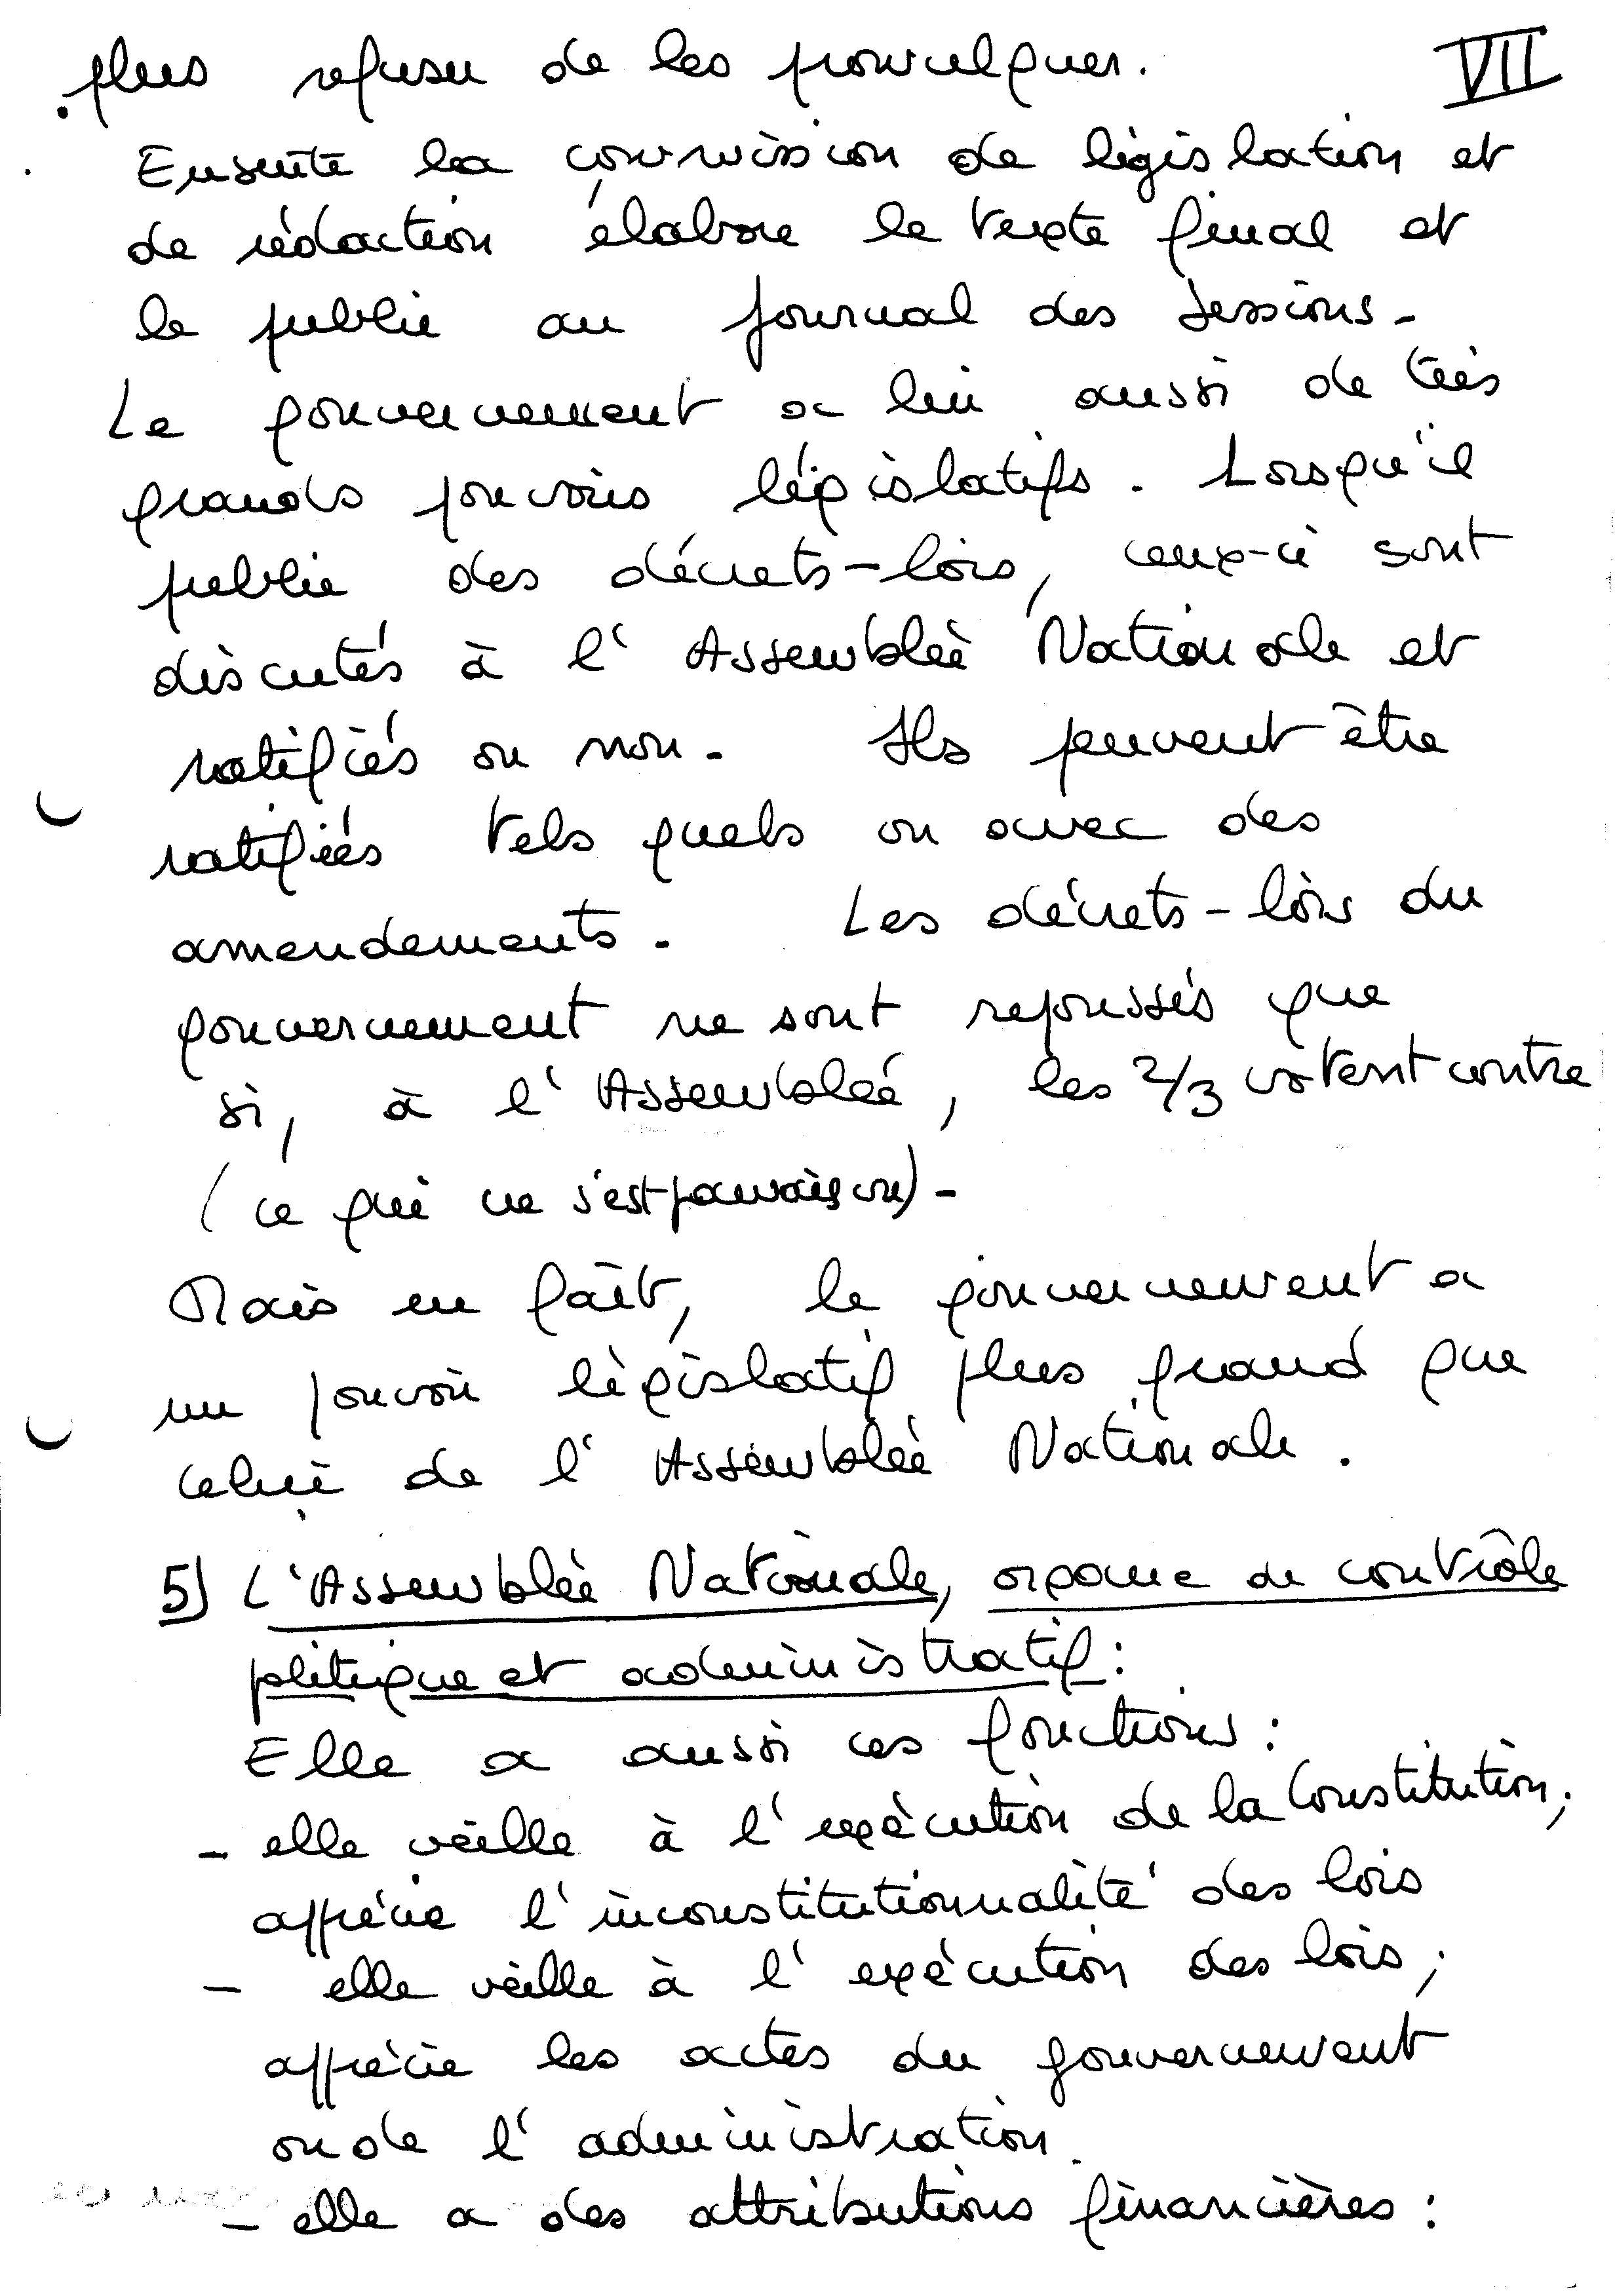 plus refuser de les promulguer. VII
Ensuite la commission de législation et
de rédaction élabore le texte final et
le publie au Journal des Sessions.
Le gouvernement a lui aussi de très
grands pouvoirs législatifs. Lorsqu'il
publie des décrets-lois, ceux-ci sont
discutés à l'Assemblée Nationale et
ratifiés ou non. Ils peuvent être
ratifiés tels quels ou avec des
amendements. Les décrets-lois du
gouvernement ne sont repoussés que
si, à l'Assemblée, les 2/3 votent contre
(ce qui ne s'est jamais vu).
Mais en fait, le gouvernement a
un pouvoir législatif plus grand que
celui de l'Assemblée Nationale.
5) L'Assemblée Nationale, organe de contrôle
politique et administratif :
Elle a aussi ces fonctions :
- elle veille à l'exécution de la Constitution;
apprécie l'inconstitutionnalité des lois
- elle veille à l'exécution des lois;
apprécie les actes du gouvernement
ou de l'administration.
- elle a des attributions financières :